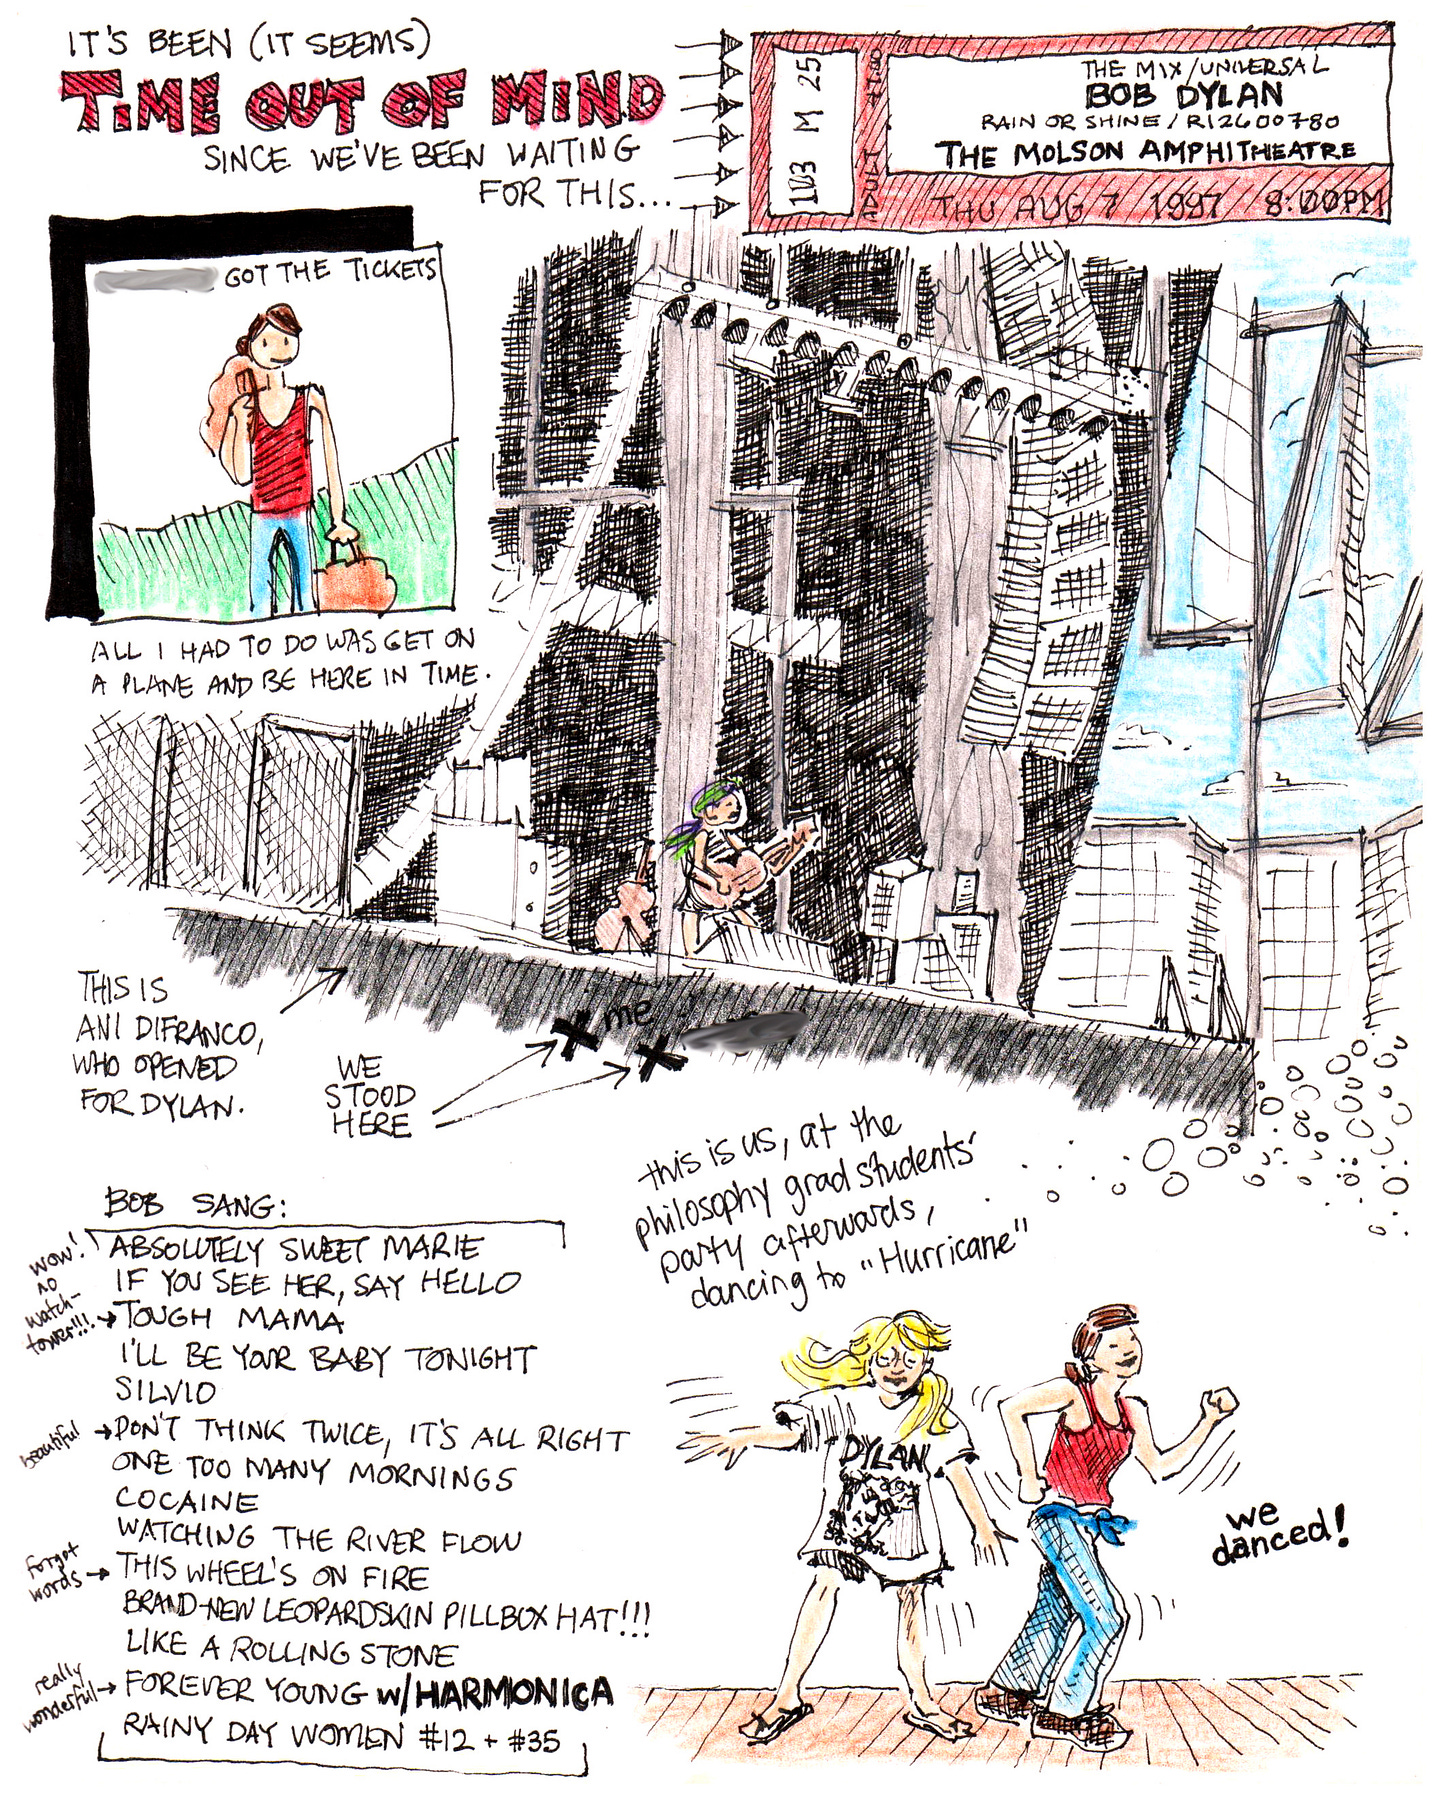 IT'S BEEN (IT SEEMS)
TIME OUT OF MIND
SINCE WE'VE BEEN WAITING
FOR THIS...
103 M 25
THE MIX/UNIVERSAL
BOB DYLAN
RAIN OR SHINE / R12600780
THE MOLSON AMPHITHEATRE
THU AUG 7 1997 8:00PM
GOT THE TICKETS
ALL I HAD TO DO WAS GET ON
A PLANE AND BE HERE IN TIME.
THIS IS
ANI DIFRANCO,
WHO OPENED
FOR DYLAN.
me
WE
STOOD
HERE
this is us, at the
philosophy grad students'
party afterwards,
dancing to "Hurricane"
BOB SANG:
wow!
no
watch-
tower!!!
ABSOLUTELY SWEET MARIE
IF YOU SEE HER, SAY HELLO
TOUGH MAMA
I'LL BE YOUR BABY TONIGHT
SILVIO
beautiful
DON'T THINK TWICE, IT'S ALL RIGHT
ONE TOO MANY MORNINGS
COCAINE
WATCHING THE RIVER FLOW
forgot
words
THIS WHEEL'S ON FIRE
BRAND-NEW LEOPARDSKIN PILLBOX HAT!!!
LIKE A ROLLING STONE
really
wonderful
FOREVER YOUNG w/HARMONICA
RAINY DAY WOMEN #12 + #35
DYLAN
we
danced!